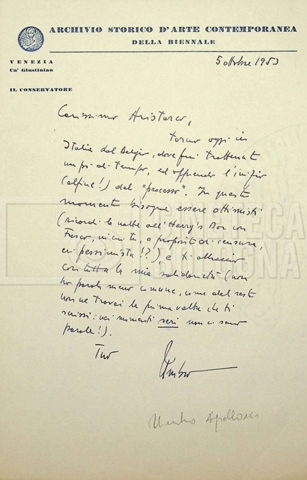 ARCHIVIO STORICO D'ARTE CONTEMPORANEA
DELLA BIENNALE
VENEZIA
Ca' Giustinian
IL CONSERVATORE
5 ottobre 1953
Carissimo Aristarco,
torno oggi in
Italia dal Belgio, dove fui trattenuto
un po' di tempo, ed apprendo l'inizio
(alfine!) del "processo". In questo
momento bisogna essere ottimisti
(ricordi la notte all'Harry's Bar con
a proposito di censura,
eri pessimista!?) e ti abbraccio
con tutta la mia solidarietà (non
ho parole meno comune, come del resto
non ne trovai la prima volta che ti
scrissi: nei momenti seri non ci sono
parole!).
Tuo
Umbro
Umbro Apollonio